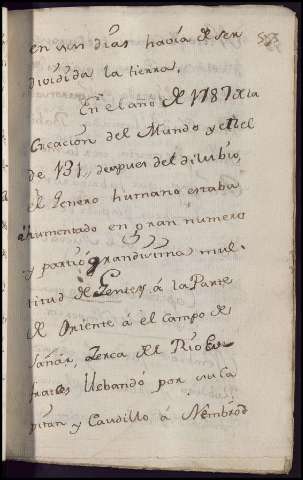 en un dias havía de ser
dividida la tierra.
En el ano de 1787 de la
Creación del Mundo y el del
de 131,, despues del dilubio,
el Jenero humano estaba
aumentado en gran numero
y partió grandissima mul-
titud de Jentes á la Parte
de Oriente á el Campo de
Sanár, Zerca del Rio Eu-
frates llebando por su Ca
pitan y Caudillo á Nembrod